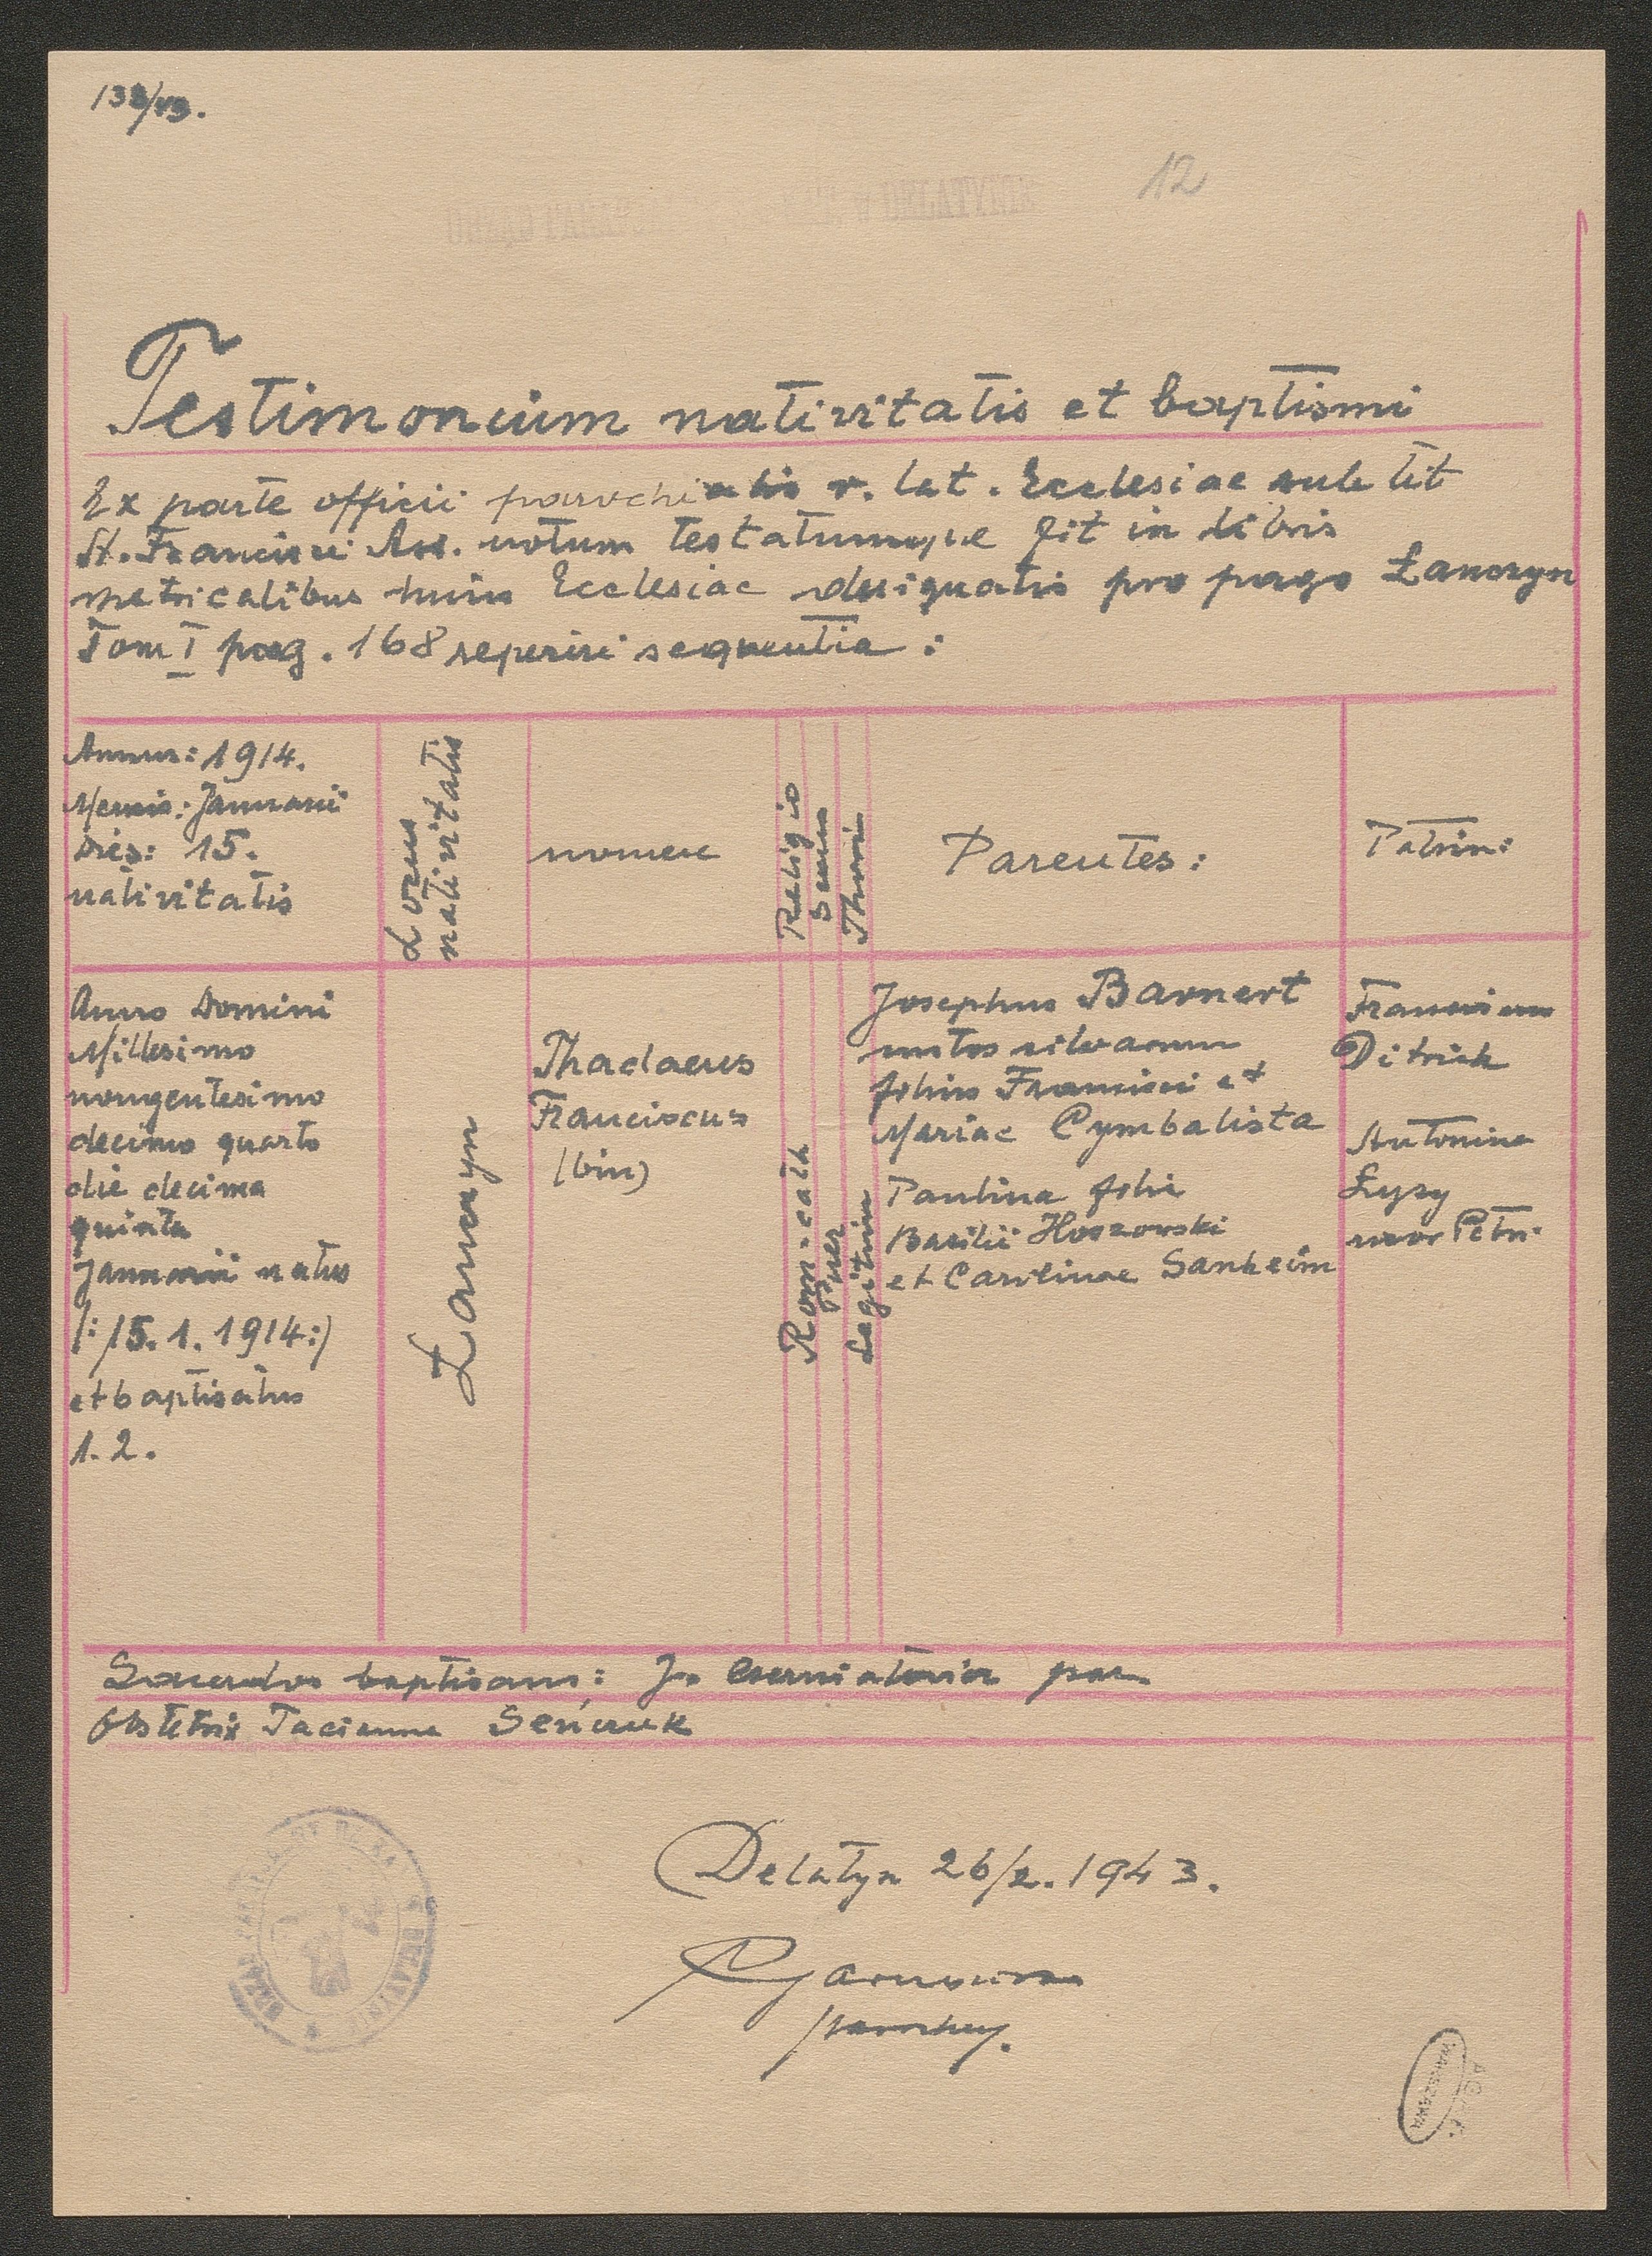 138/43.
12
W DELATYNIE
Testimonium nativitatis et baptismi
Ex parte officii parochialis r. lat. Ecclesiae sub tit
St. Francisci Ass. notum testatumque fit in libris
metricalibus huius Ecclesiae designatis pro pago Łanczyn
Tom I pag. 168 reperiri sequentia:
Annus: 1914.
Mensis: Januarii
Dies: 15.
nativitatis
Locus
nativitatis
nomen
Religio
Sexus
Thori
Parentes:
Patrini:
Anno Domini
Millesimo
nongentesimo
decimo quarto
die decima
quinta
Januarii natus
/: 15. 1. 1914:/
et baptisatus
1. 2.
Łanczyn
Thadaeus
Franciscus
(bin)
Rom-cath
Puer
Legitimi
Josephus Barnert
custos silvarum
filius Francisci et
Mariae Cymbalista
Paulina filia
Basilii Hoszowski
et Carolinae Sanheim
Franciscus
Ditrich
Antonina
Łyzy
uxor Petri
Sacerdos baptisans: Jo. par.
Obstetrix Tacianna Seńczuk
Delatyn 26/2. 1943.
parochus.
WARSZAWA